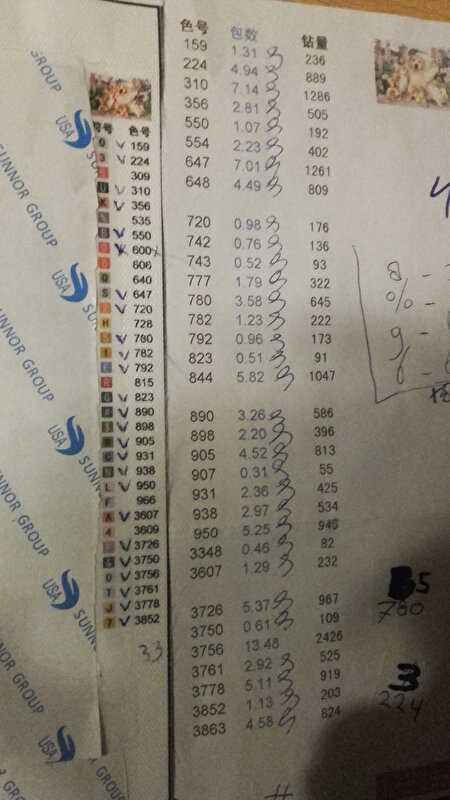 SUNNOR GROUP
USA
符号 色号
0 159
3 224
309
U 310
K 356
535
550
600
606
640
S 647
720
H 728
780
782
792
R 815
823
890
898
905
C 931
N 938
L 950
F 966
A 3607
4 3609
3726
6 3750
0 3756
T 3761
J 3778
7 3852
33
色号 包数 钻量
159 1.31 236
224 4.94 889
310 7.14 1286
356 2.81 505
550 1.07 192
554 2.23 402
647 7.01 1261
648 4.49 809
720 0.98 176
742 0.76 136
743 0.52 93
777 1.79 322
780 3.58 645
782 1.23 222
792 0.96 173
823 0.51 91
844 5.82 1047
890 3.26 586
898 2.20 396
905 4.52 813
907 0.31 55
931 2.36 425
938 2.97 534
950 5.25 945
3348 0.46 82
3607 1.29 232
3726 5.37 967
3750 0.61 109
3756 13.48 2426
3761 2.92 525
3778 5.11 919
3852 1.13 203
3863 4.58 824
5
780
3
224